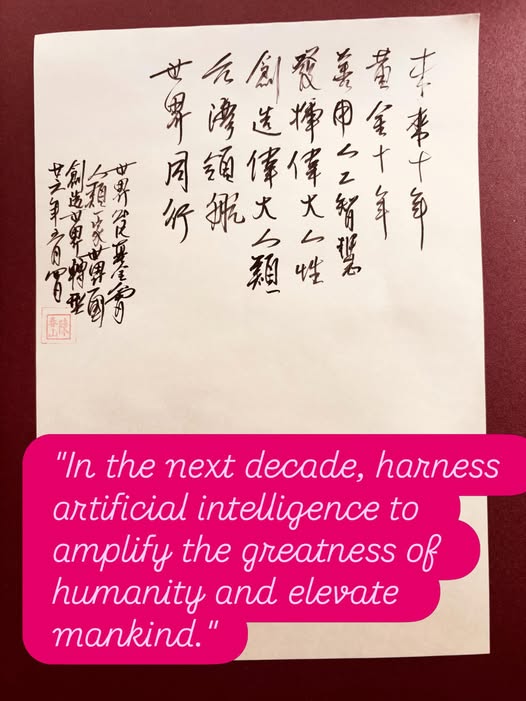 未來十年
黃金十年
善用人工智慧
發揮偉大人性
創造偉大人類
台灣領航
世界同行
世界公民基金會
人類一家世界一國
創造世界轉型
廿六年三月
陳春山
"In the next decade, harness
artificial intelligence to
amplify the greatness of
humanity and elevate
mankind."